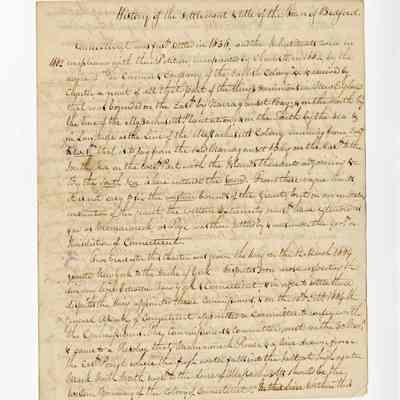 History of the Settlement & title of the Town of Bedford.
Connecticut was first settled in 1636, and the Inhabitants were in
1662 compliance with the Petition incorporated by Charles 2d in 1662 by the
name of The Govenor & Company of the English Colony &c & received by
Charter a grant of all that part of the Kings dominions in New England
that was bounded on the East by Narraganset Bay, on the North by
the line of the Massachusetts Plantation, on the South by the sea &
in Longitude as the Line of the Massachusetts Colony running from East
to West, that is to say from the said Narraganset Bay on the East to the
South Sea on the West Part with the Islands thereunto adjoining &c
By the South Sea is here intended the Sound. From these vague bounds
it is not easy to fix the western bounds of the Grant, but on an
construction of the grant the western extremity must have extended as
far as Mamaroneck as Rye was then settled by & was under the govt. or
Jurisdiction of Connecticut.
Soon hereafter this charter was given the King on the 12 March 1664
granted New York to the Duke of York. Disputes soon arose respecting the
line between New York & Connecticut, & in order to settle these
disputes the King appointed three Commissioners, & on the 13th Octr 1664 the
General Assembly of Connecticut appointed a Committee to confer with
the Commissioners. The Commissioners & Committee met on the 30 Novr,
& came to a Resolve that Mamaroneck River & a line drawing from
the East Point where the fresh water falls into the salt at high water
Mark North North west to the line of Massachusetts should be the
western Boundary of the Colony of Connecticut. In this line within this